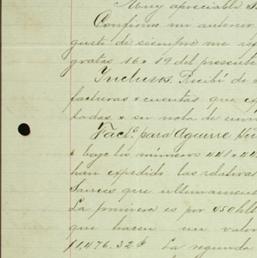 Muy apreciable
Confirmo mi anterior
gusto de siempre me
gratas 16 y 19 del presente
Inclusos. Recibí de
facturas y cuentas que
su nota de
Fact.s para Aguirre
bajo los números 441 y 44
han expedido las relativas
que ultimamente
La primera es por 450
que hacen un valor
11,476.32 La segunda